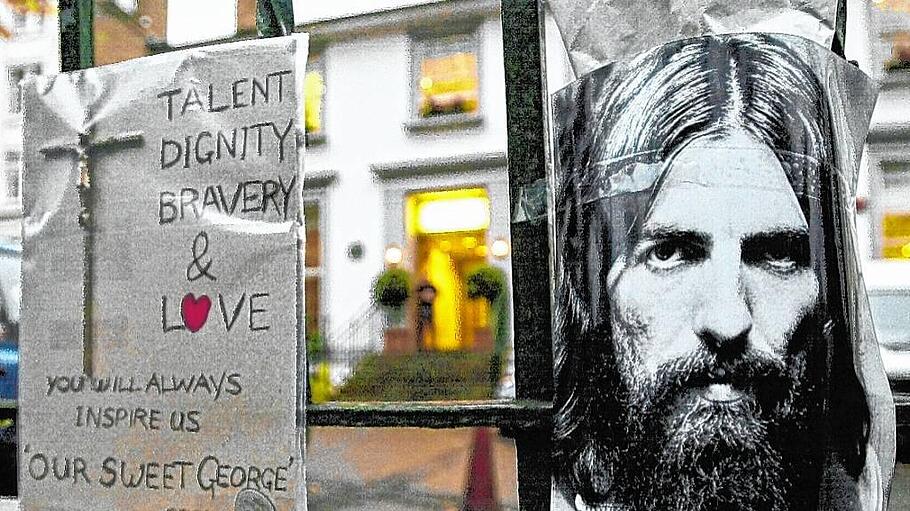 TALENT
DIGNITY
BRAVERY
&
LOVE
YOU WILL ALWAYS
INSPIRE US
'OUR SWEET GEORGE'